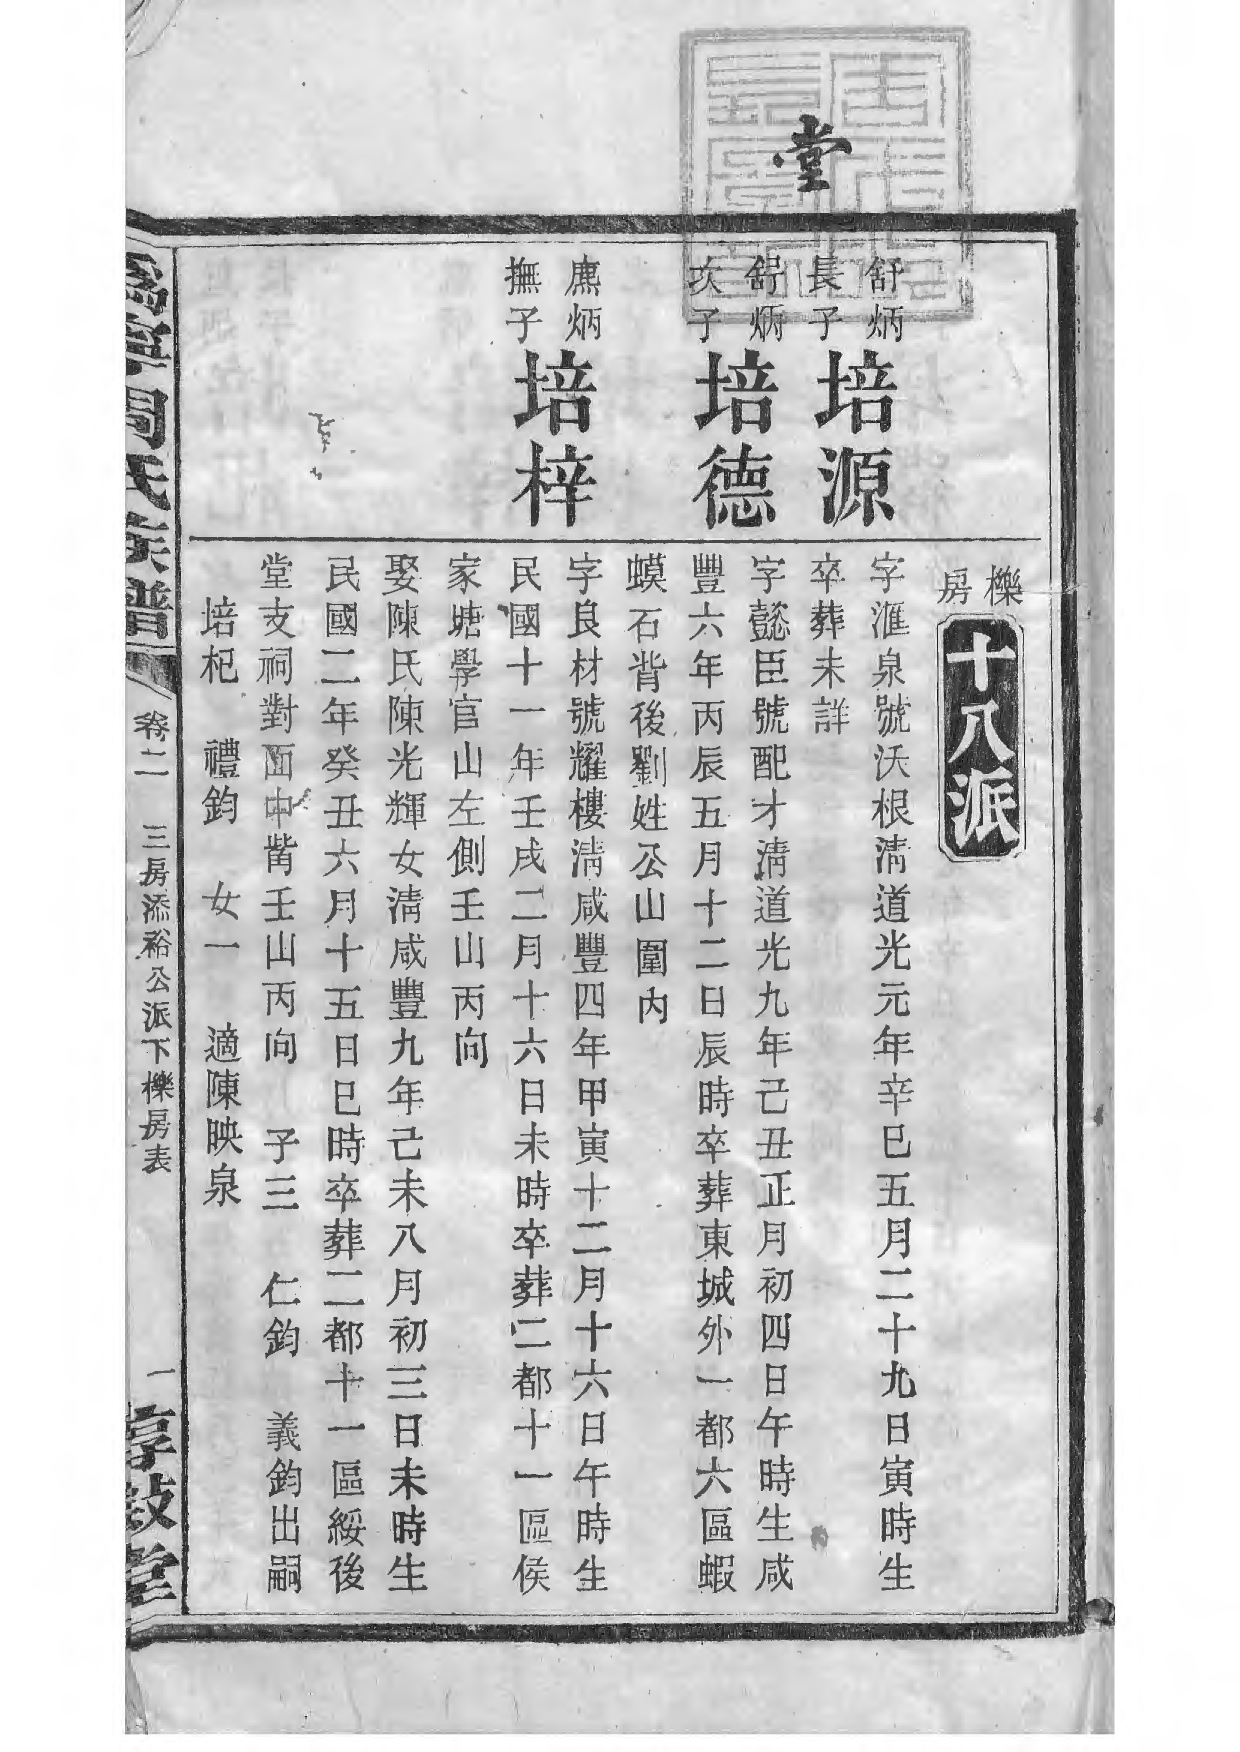 堂
櫟房
十八派
舒炳長子
培源
字滙泉號沃根淸道光元年辛巳五月二十九日寅時生
卒葬未詳
舒炳次子
培德
字懿臣號配才淸道光九年己丑正月初四日午時生咸
豐六年丙辰五月十二日辰時卒葬東城外一都六區蝦
蟆石背後劉姓公山圍內
廌炳撫子
培梓
字良材號耀樓淸咸豐四年甲寅十二月十六日午時生
民國十一年壬戌二月十六日未時卒葬二都十一區侯
家塘學官山左側壬山丙向
娶陳氏陳光輝女淸咸豐九年己未八月初三日未時生
民國二年癸丑六月十五日巳時卒葬二都十一區綏後
堂支祠對面中觜壬山丙向 子三 仁鈞 義鈞出嗣
培杞 禮鈞 女一 適陳映泉
寧周氏族譜
卷二 三房添裕公派下櫟房表
一
惇敍堂